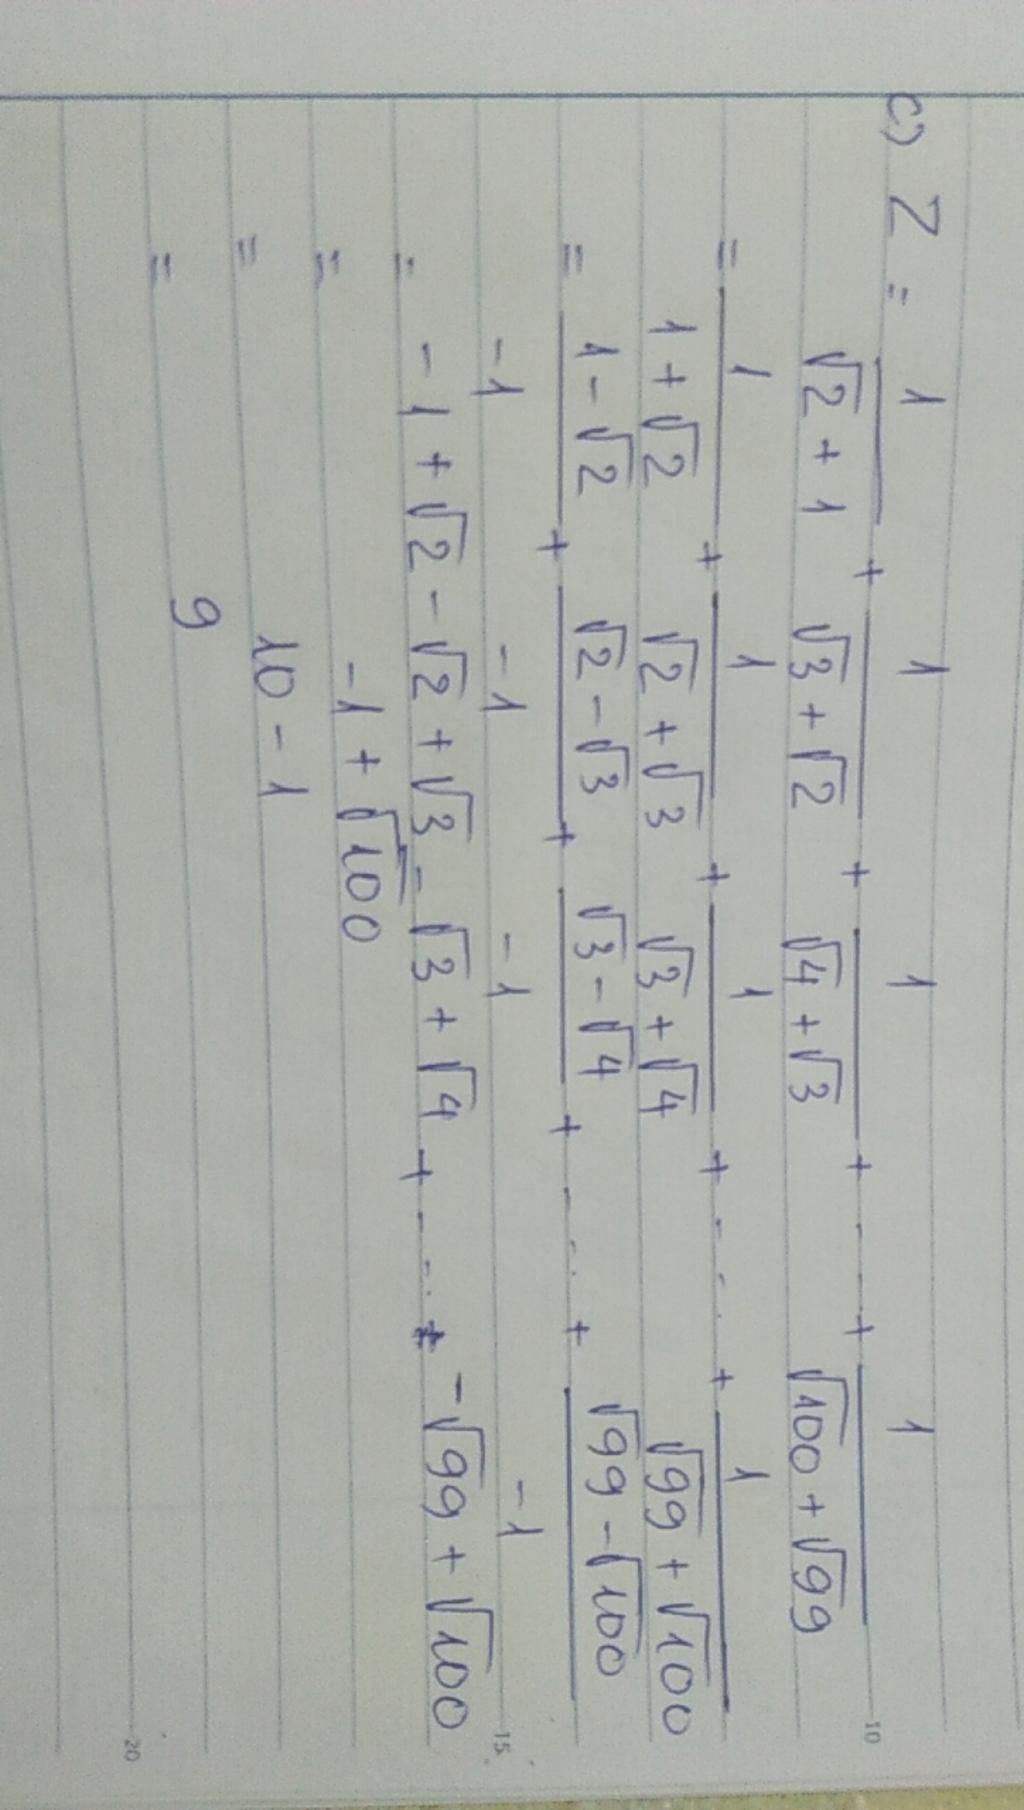 c) Z = 1/(√2 + 1) + 1/(√3 + √2) + 1/(√4 + √3) + ---- + 1/(√100 + √99)
10
= 1/(1 + √2) + 1/(√2 + √3) + 1/(√3 + √4) + - - - . + 1/(√99 + √100)
= (1 - √2)/-1 + (√2 - √3)/-1 + (√3 - √4)/-1 + - - .. + (√99 - √100)/-1
15
= - 1 + √2 - √2 + √3 - √3 + √4 + - - .. + -√99 + √100
= -1 + √100
= 10 - 1
= 9
20